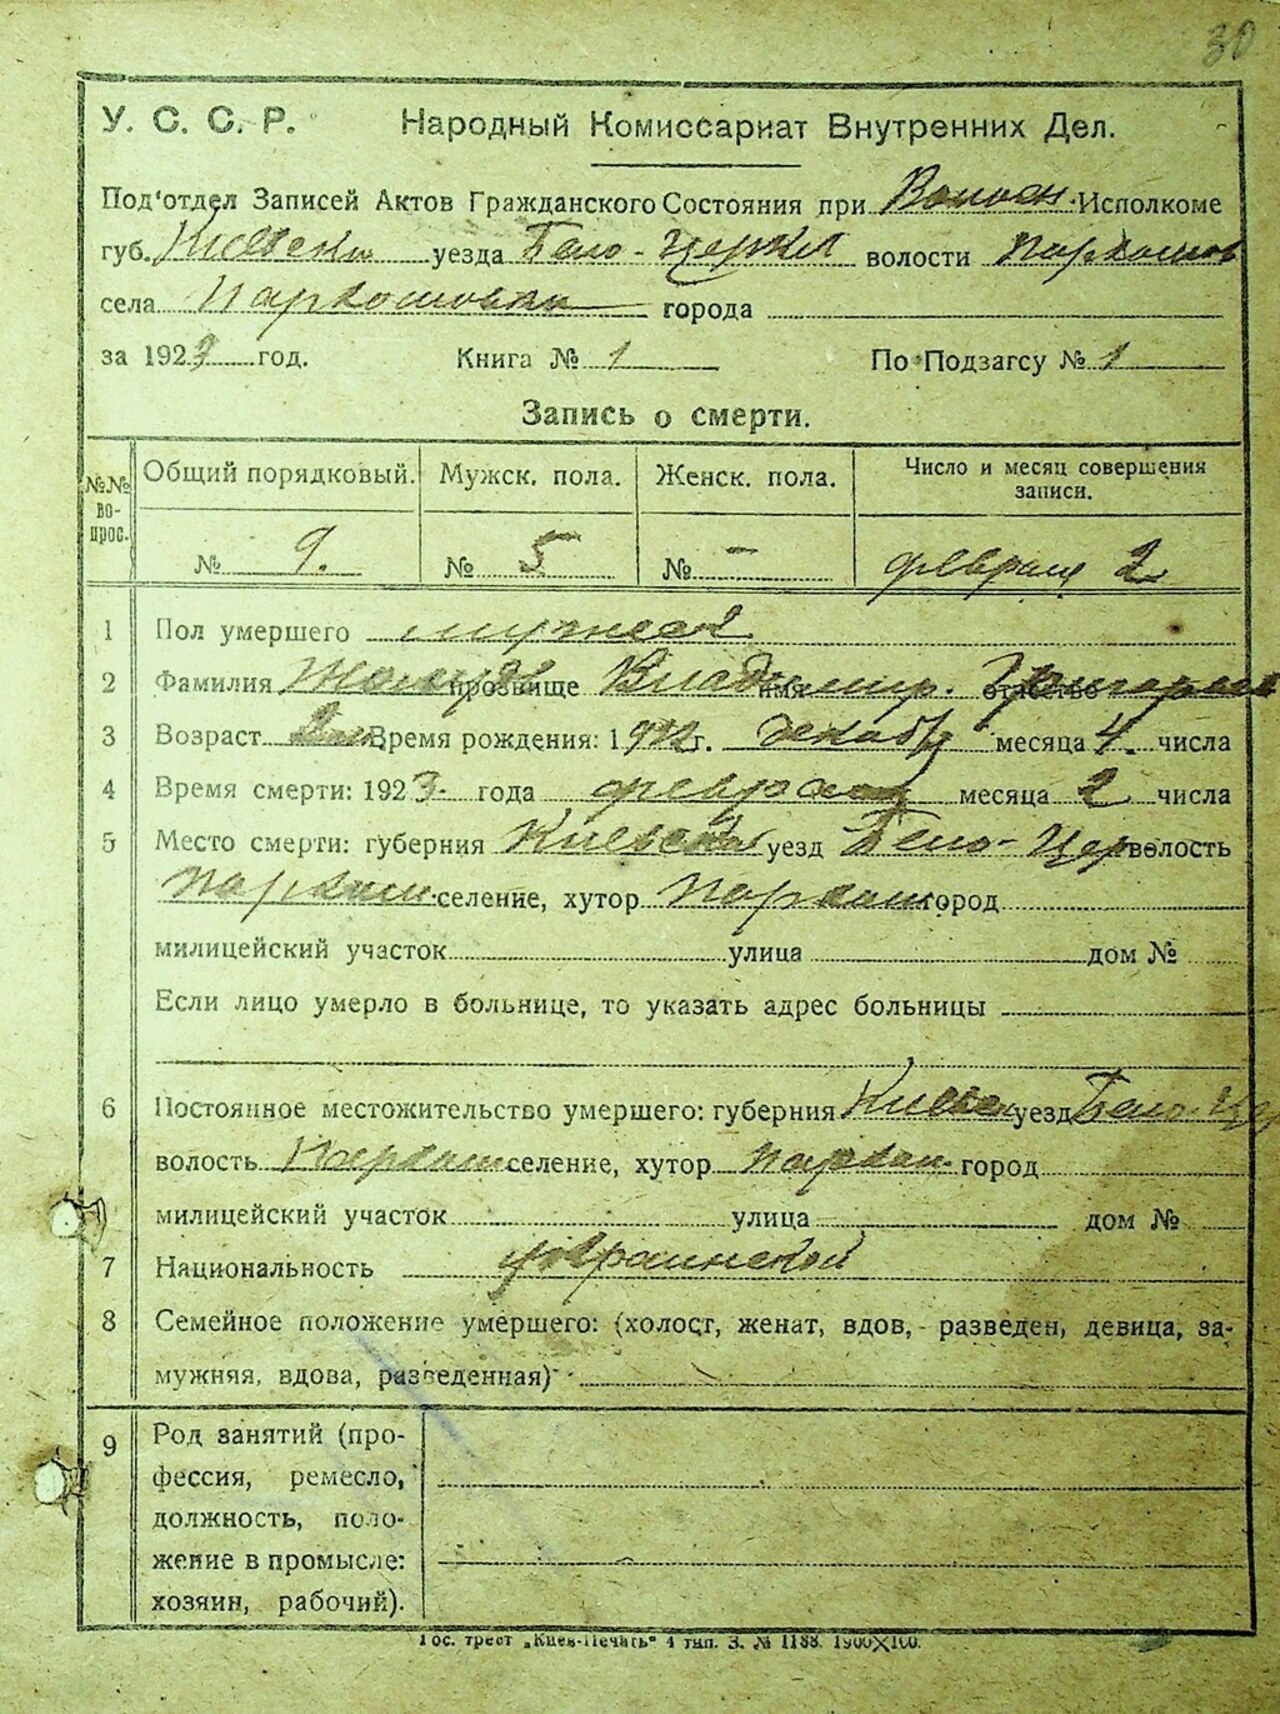 30
У. С. С. Р. Народный Комиссариат Внутренних Дел.
Под'отдел Записей Актов Гражданского Состояния при Исполкоме
губ. Киевски уезда Бело-Церкл волости
села города
за 1923 год. Книга № 1 По Подзагсу № 1
Запись о смерти.
№№ вопрос. Общий порядковый. Мужск. пола. Женск. пола. Число и месяц совершения записи.
№ 9. № 5 № - февраля 2
1 Пол умершего мужской
2 Фамилия прозвище Владимир. имя отчество
3 Возраст Время рождения: 1922 г. декабря месяца 4. числа
4 Время смерти: 1923 года февраля месяца 2 числа
5 Место смерти: губерния Киевски уезд Бело-Цер волость
селение, хутор город
милицейский участок улица дом №
Если лицо умерло в больнице, то указать адрес больницы
6 Постоянное местожительство умершего: губерния Киевск уезд Бело-Цер
волость селение, хутор город
милицейский участок улица дом №
7 Национальность украинской
8 Семейное положение умершего: (холост, женат, вдов, разведен, девица, за-
мужняя, вдова, разведенная)
9 Род занятий (про-
фессия, ремесло,
должность, поло-
жение в промысле:
хозяин, рабочий).
Гос. трест „Киев-Печать" 4 тип. З. № 1188. 1900X100.